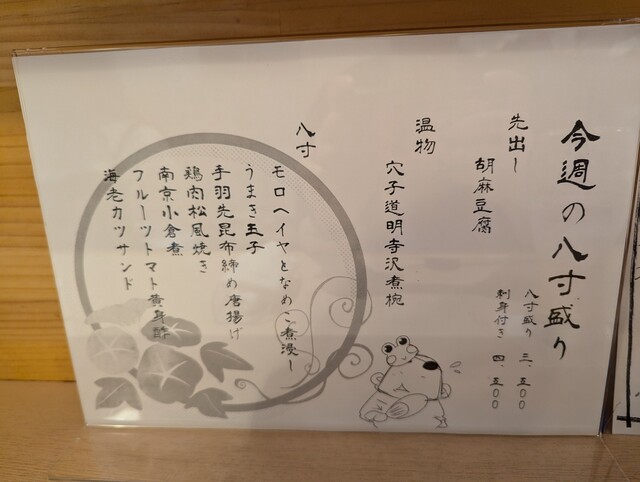 今週の八寸盛り
八寸盛り 三、五〇〇
刺身付き 四、五〇〇
先出し
胡麻豆腐
温物
穴子道明寺沢煮椀
八寸
モロヘイヤとなめこ煮浸し
うまき玉子
手羽先昆布締め唐揚げ
鶏肉松風焼き
南京小倉煮
フルーツトマト黄身酢
海老カツサンド